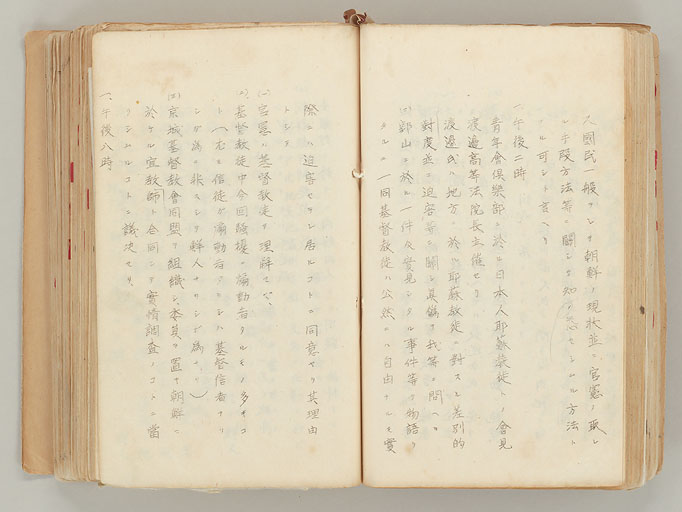 國民一般ヲシテ朝鮮ノ現狀並ニ官憲ノ取レ
ル手段方法等ニ關シテ知悉セシムル方法ト
可シト言ヘリ
一、午後二時
青年會俱樂部ニ於テ日本人耶蘇敎徒トノ會見
渡邊高等法院長主催セリ
渡邊氏ハ地方ニ於ケル耶蘇敎徒ニ對スル差別的
對度並ニ迫害等ニ關シ眞僞ヲ我等ニ問ヘリ
郡山ニ於ル一件及實見シタル事件等ヲ物語リ
タルニ一同基督敎徒ハ公然ニハ自由ナルモ實
際ニハ迫害セラレ居ルコトニ同意セリ其理由
トシテ
(一)官憲ハ基督敎徒ヲ理解セズ、
(二)基督敎徒中今回騷擾ノ煽動者タルモノ多キコ
ト(右モ信徒ガ煽動者タリシハ基督信者ナリ
シガ爲ニ非スシテ鮮人ナリシガ爲ナリ)
(三)京城基督敎會同盟ヲ組織シ委員ヲ置キ朝鮮ニ
於ケル宣敎師ト合同シテ實情調査ノコトニ當
ラシムルコトニ議決セリ、
一、午後八時